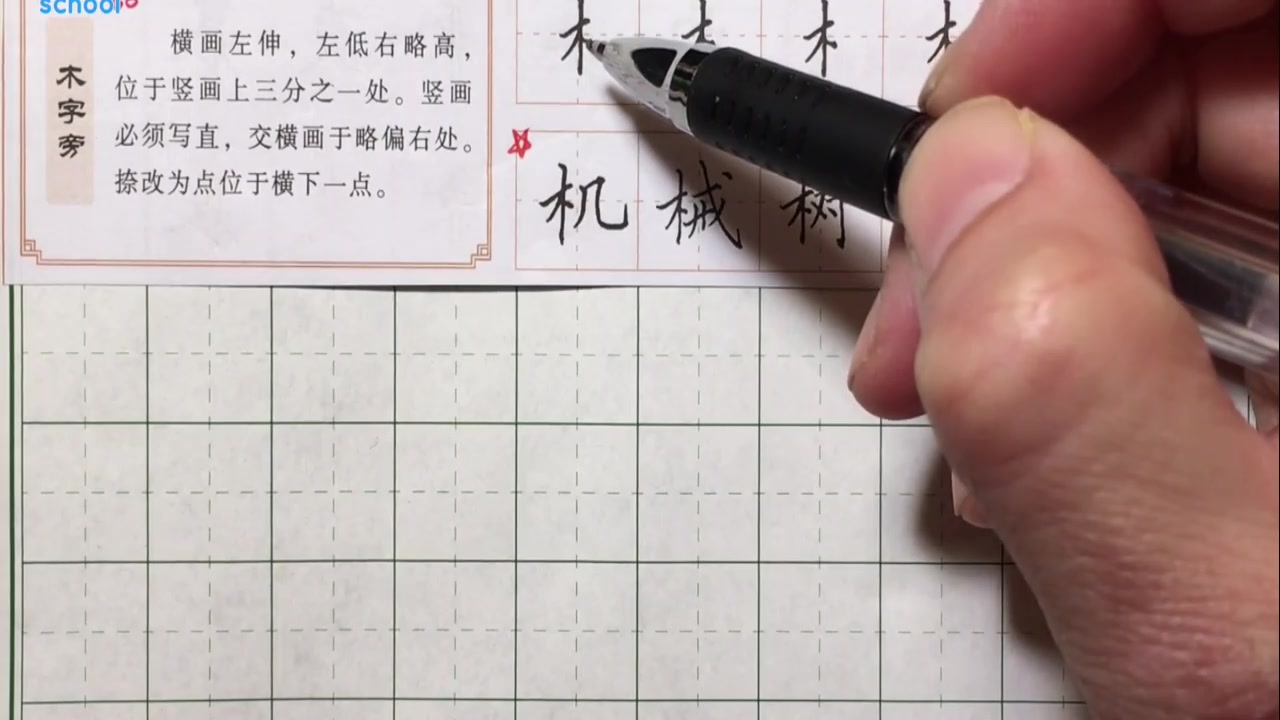 school
木字旁
横画左伸，左低右略高，
位于竖画上三分之一处。竖画
必须写直，交横画于略偏右处。
捺改为点位于横下一点。
机 械 树